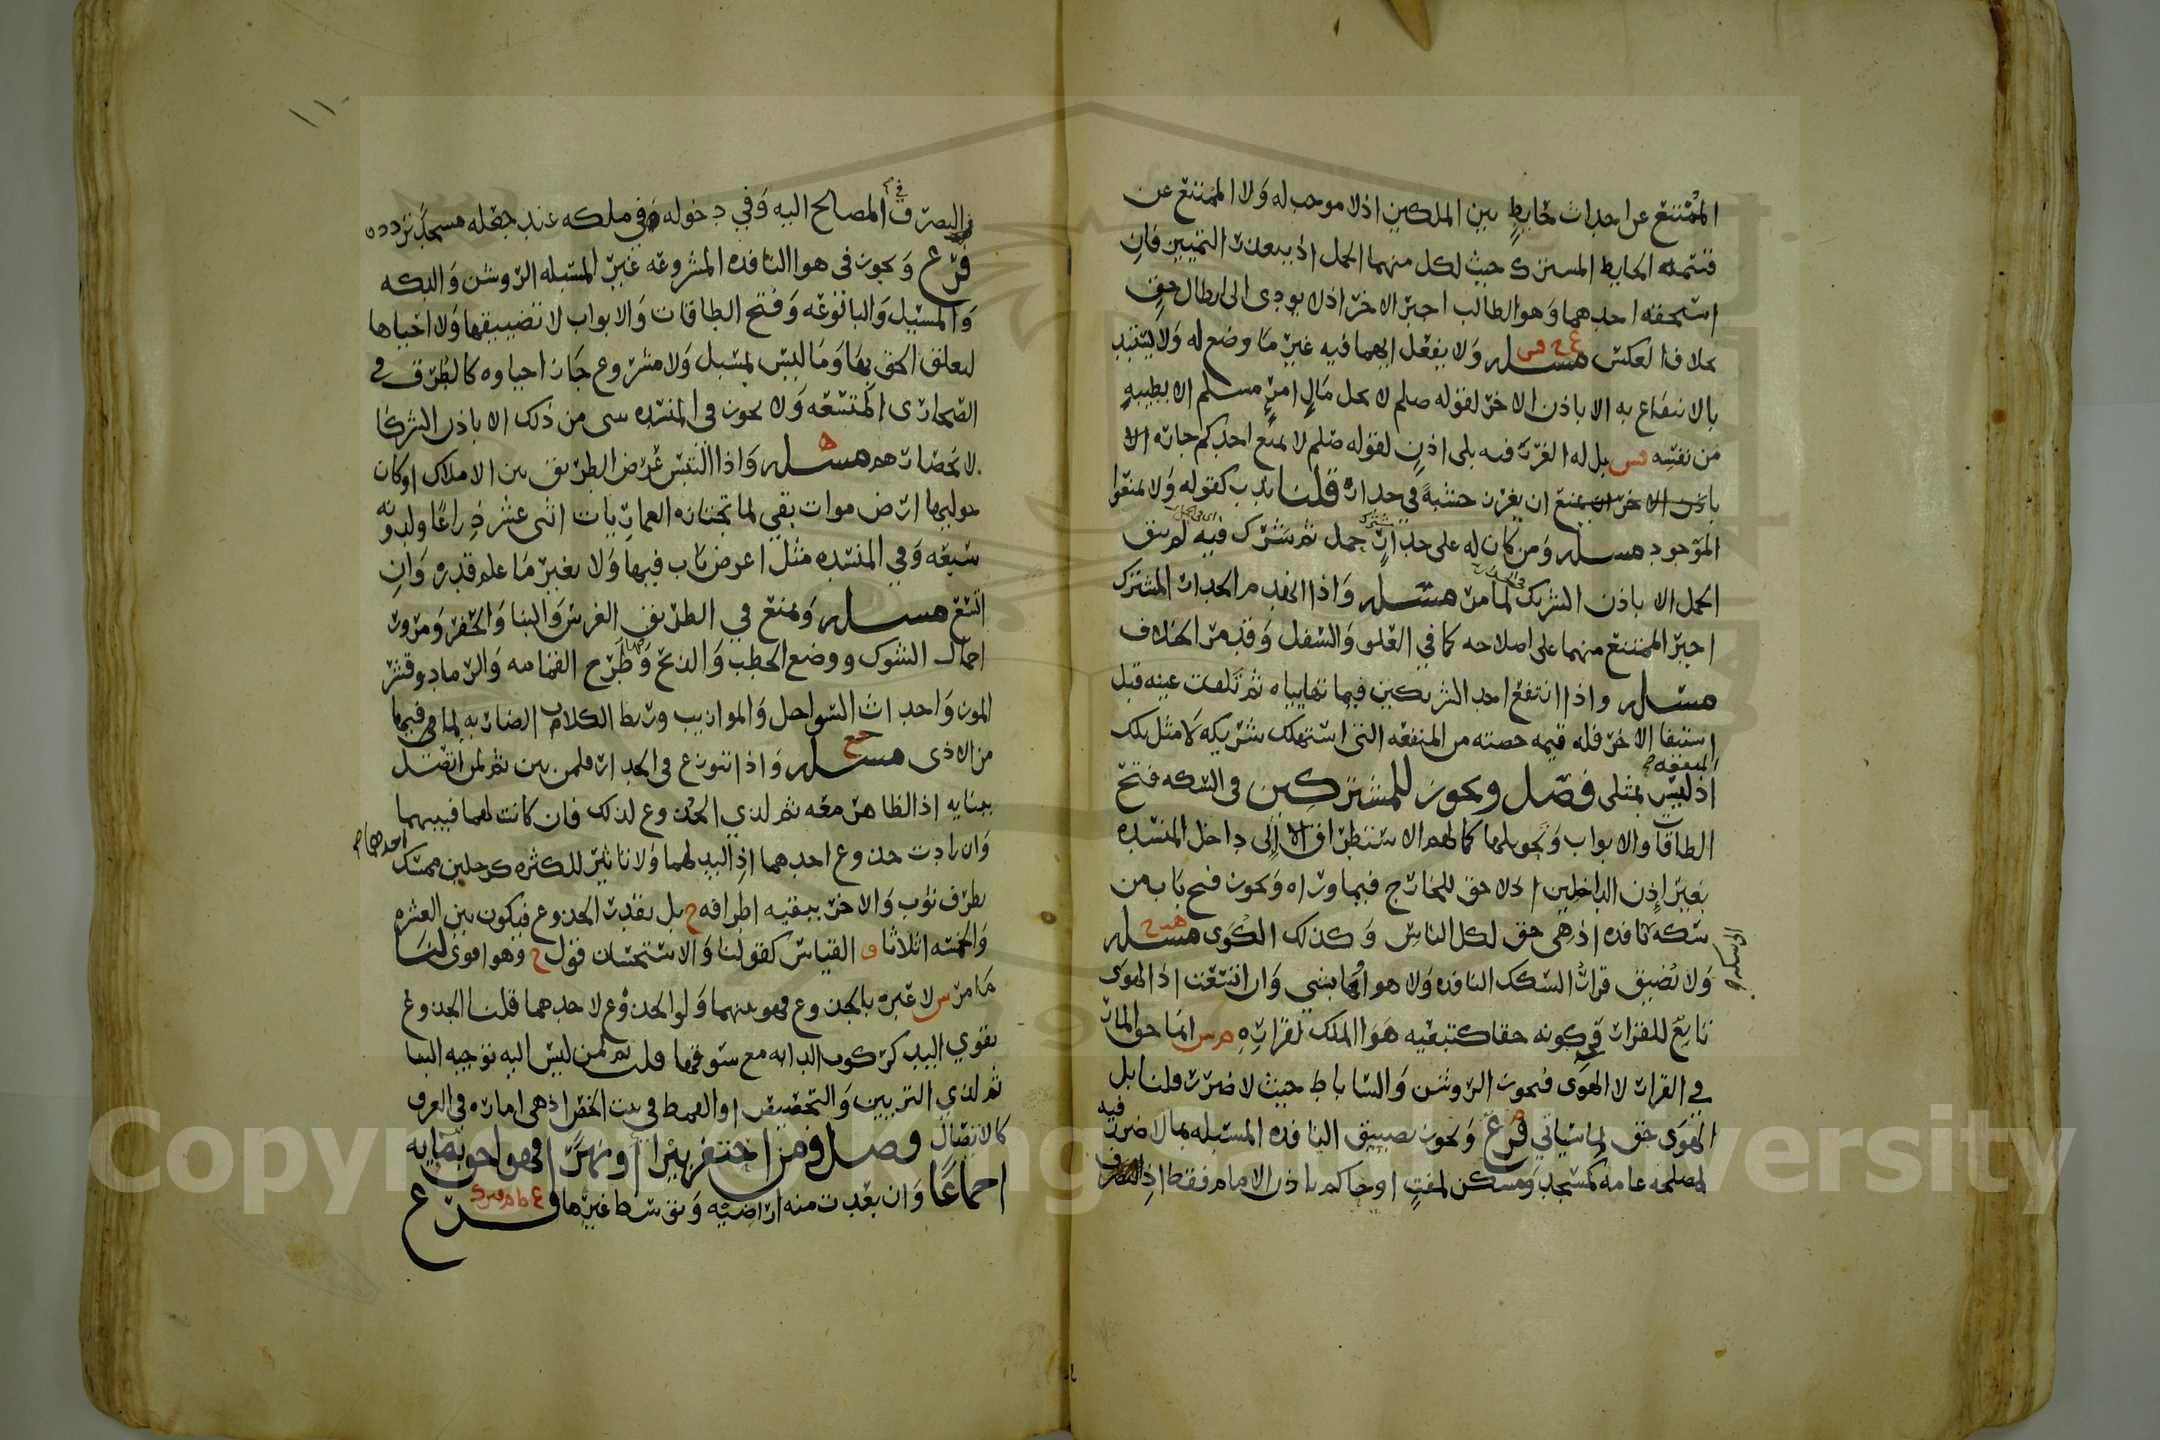 الممتنع عن احداث حايط بين الملكين اذ لا موجب له ولا الممتنع عن
قسمة الحايط المشترك حيث لكل منهما الحمل اذ يبعدن التمييز فان
استحقه احدهما وهو الطالب اجبر الاخر اذ لا يودى الى ابطال حق
بخلاف العكس مسله ولا يفعل ايهما فيه غير ما وضع له ولا يستبد
بالانتفاع به الا باذن الاخر لقوله صلم لا يحل مال امرء مسلم الا بطيبة
من نفسه بل له الغرز فيه بلى اذن لقوله صلم لا يمنع احدكم جاره
ان يغرز خشبة في جداره قلنا ندب كقوله ولا يمنعوا
الموجود مسله ومن كان له على جدار حمل ثم شرك فيه لم يبق
الحمل الا باذن الشريك لما مر مسله واذا انهدم الجدار المشترك
اجبر الممتنع منهما على اصلاحه كما في العلو والسفل وقد مر الخلاف
مسله واذا انتفع احد الشريكين فيما تهايياه ثم تلفت عينه قبل
استيفا الاخر فله قيمه حصته من المنفعه التي استهلك شريكه لا مثل تلك
المنفعه
اذ ليس بمثلي فصل ويجوز للمشتركين في السكه فتح
الطاقات والابواب وتحويلها كما لهم الاستطراق الا الى داخل المنسده
بغير اذن الداخلين اذ لا حق للخارج فيما وراه ويجوز فتح باب من
سكه نافده اذ هي حق لكل الناس وكذلك الكوى مسله
ولا يضيق قرار السكك النافده ولا هواها بشي وان اتسعت اذ الهوى
تابع للقرار في كونه حقا كتبعيه هوا الملك لقراره انما حق المار
في القرار لا الهوى فيجوز الروشن والساباط حيث لا ضرر قلنا بل
الهوى حق لما سياتي فرع ويجوز تضييق النافده المسبله بما لا ضرر فيه
لمصلحه عامه كمسجد ومسكن لمفت او حاكم باذن الامام فقط اذ
التصرف في المصالح اليه وفي دخوله في ملكه عند جعله مسجدا تردد
فرع ويجوز في هوا النافده المشروعه غير المسبله الروشن والدكه
والمسيل والبالوعه وفتح الطاقات والابواب لا تضييقها ولا احياها
لتعلق الحق بها وما ليس بمسبل ولا مشروع جاز احياوه كالطرق في
الصحارى المتسعه ولا يجوز في المنسده شى من ذلك الا باذن الشركا
لانحصارهم مسله واذا التبس عرض الطريق بين الاملاك او كان
حواليها ارض موات بقي لما تجتازه العماريات اثنى عشر ذراعا ولدونه
سبعه وفي المنسده مثل اعرض باب فيها ولا يغير ما علم قدره وان
اتسع مسله ويمنع في الطريق الغرس والبنا والحفر ومرور
احمال الشوك ووضع الحطب والذبح وطرح القمامه والرماد وقشر
الموز واحداث السواحل والموازيب وربط الكلاب الضاريه لما في فيها
من الاذى مسله واذا تنوزع في الجدار فلمن بين ثم لمن اتصل
ببنايه اذ الظاهر معه ثم لذي الجذوع لذلك فان كانت لهما فبينهما
وان زادت جذوع احدهما اذ اليد لهما ولا تاثير للكثره كرجلين ممسك احدهما
بطرف ثوب والاخر ببقيه اطرافه ح بل بقدر الجذوع فيكون بين العشره
والخمسه اثلاثا القياس كقولنا والاستحسان قول ح وهو اقوى لنا
ما مر س لا عبره بالجذوع فهو بينهما ولو الجذوع لاحدهما قلنا الجذوع
تقوي اليد كركوب الدابه مع سوقها قلت ثم لمن ليس اليه توجيه البنا
ثم لذي التزيين والتجصيص او القمط في بيت الخص اذ هي اماره في العرف
كالاتصال فصل ومن احتفر بيرا او نهرا فهو احق بمايه
اجماعا وان بعدت منه اراضيه وتوسط غيرها فرع